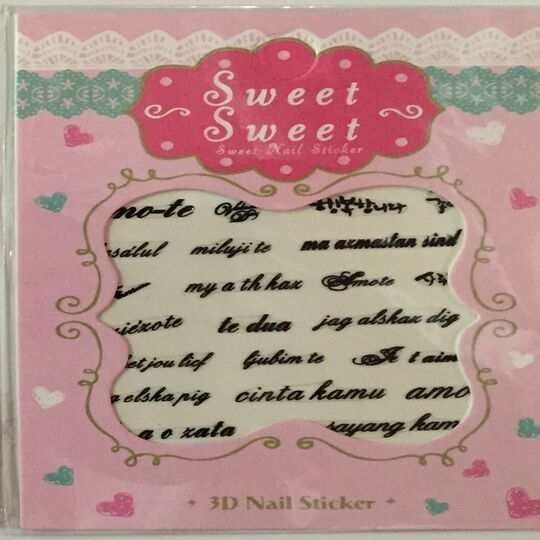 Sweet
Sweet
Sweet Nail Sticker
mo-te
miluji te ma azmastan sind
my a th kax Amote
te dua jag alskax dig
et jou lief ljubim te Je t aim
elska pig cinta kamu amo
a o zata sayang kam
3D Nail Sticker